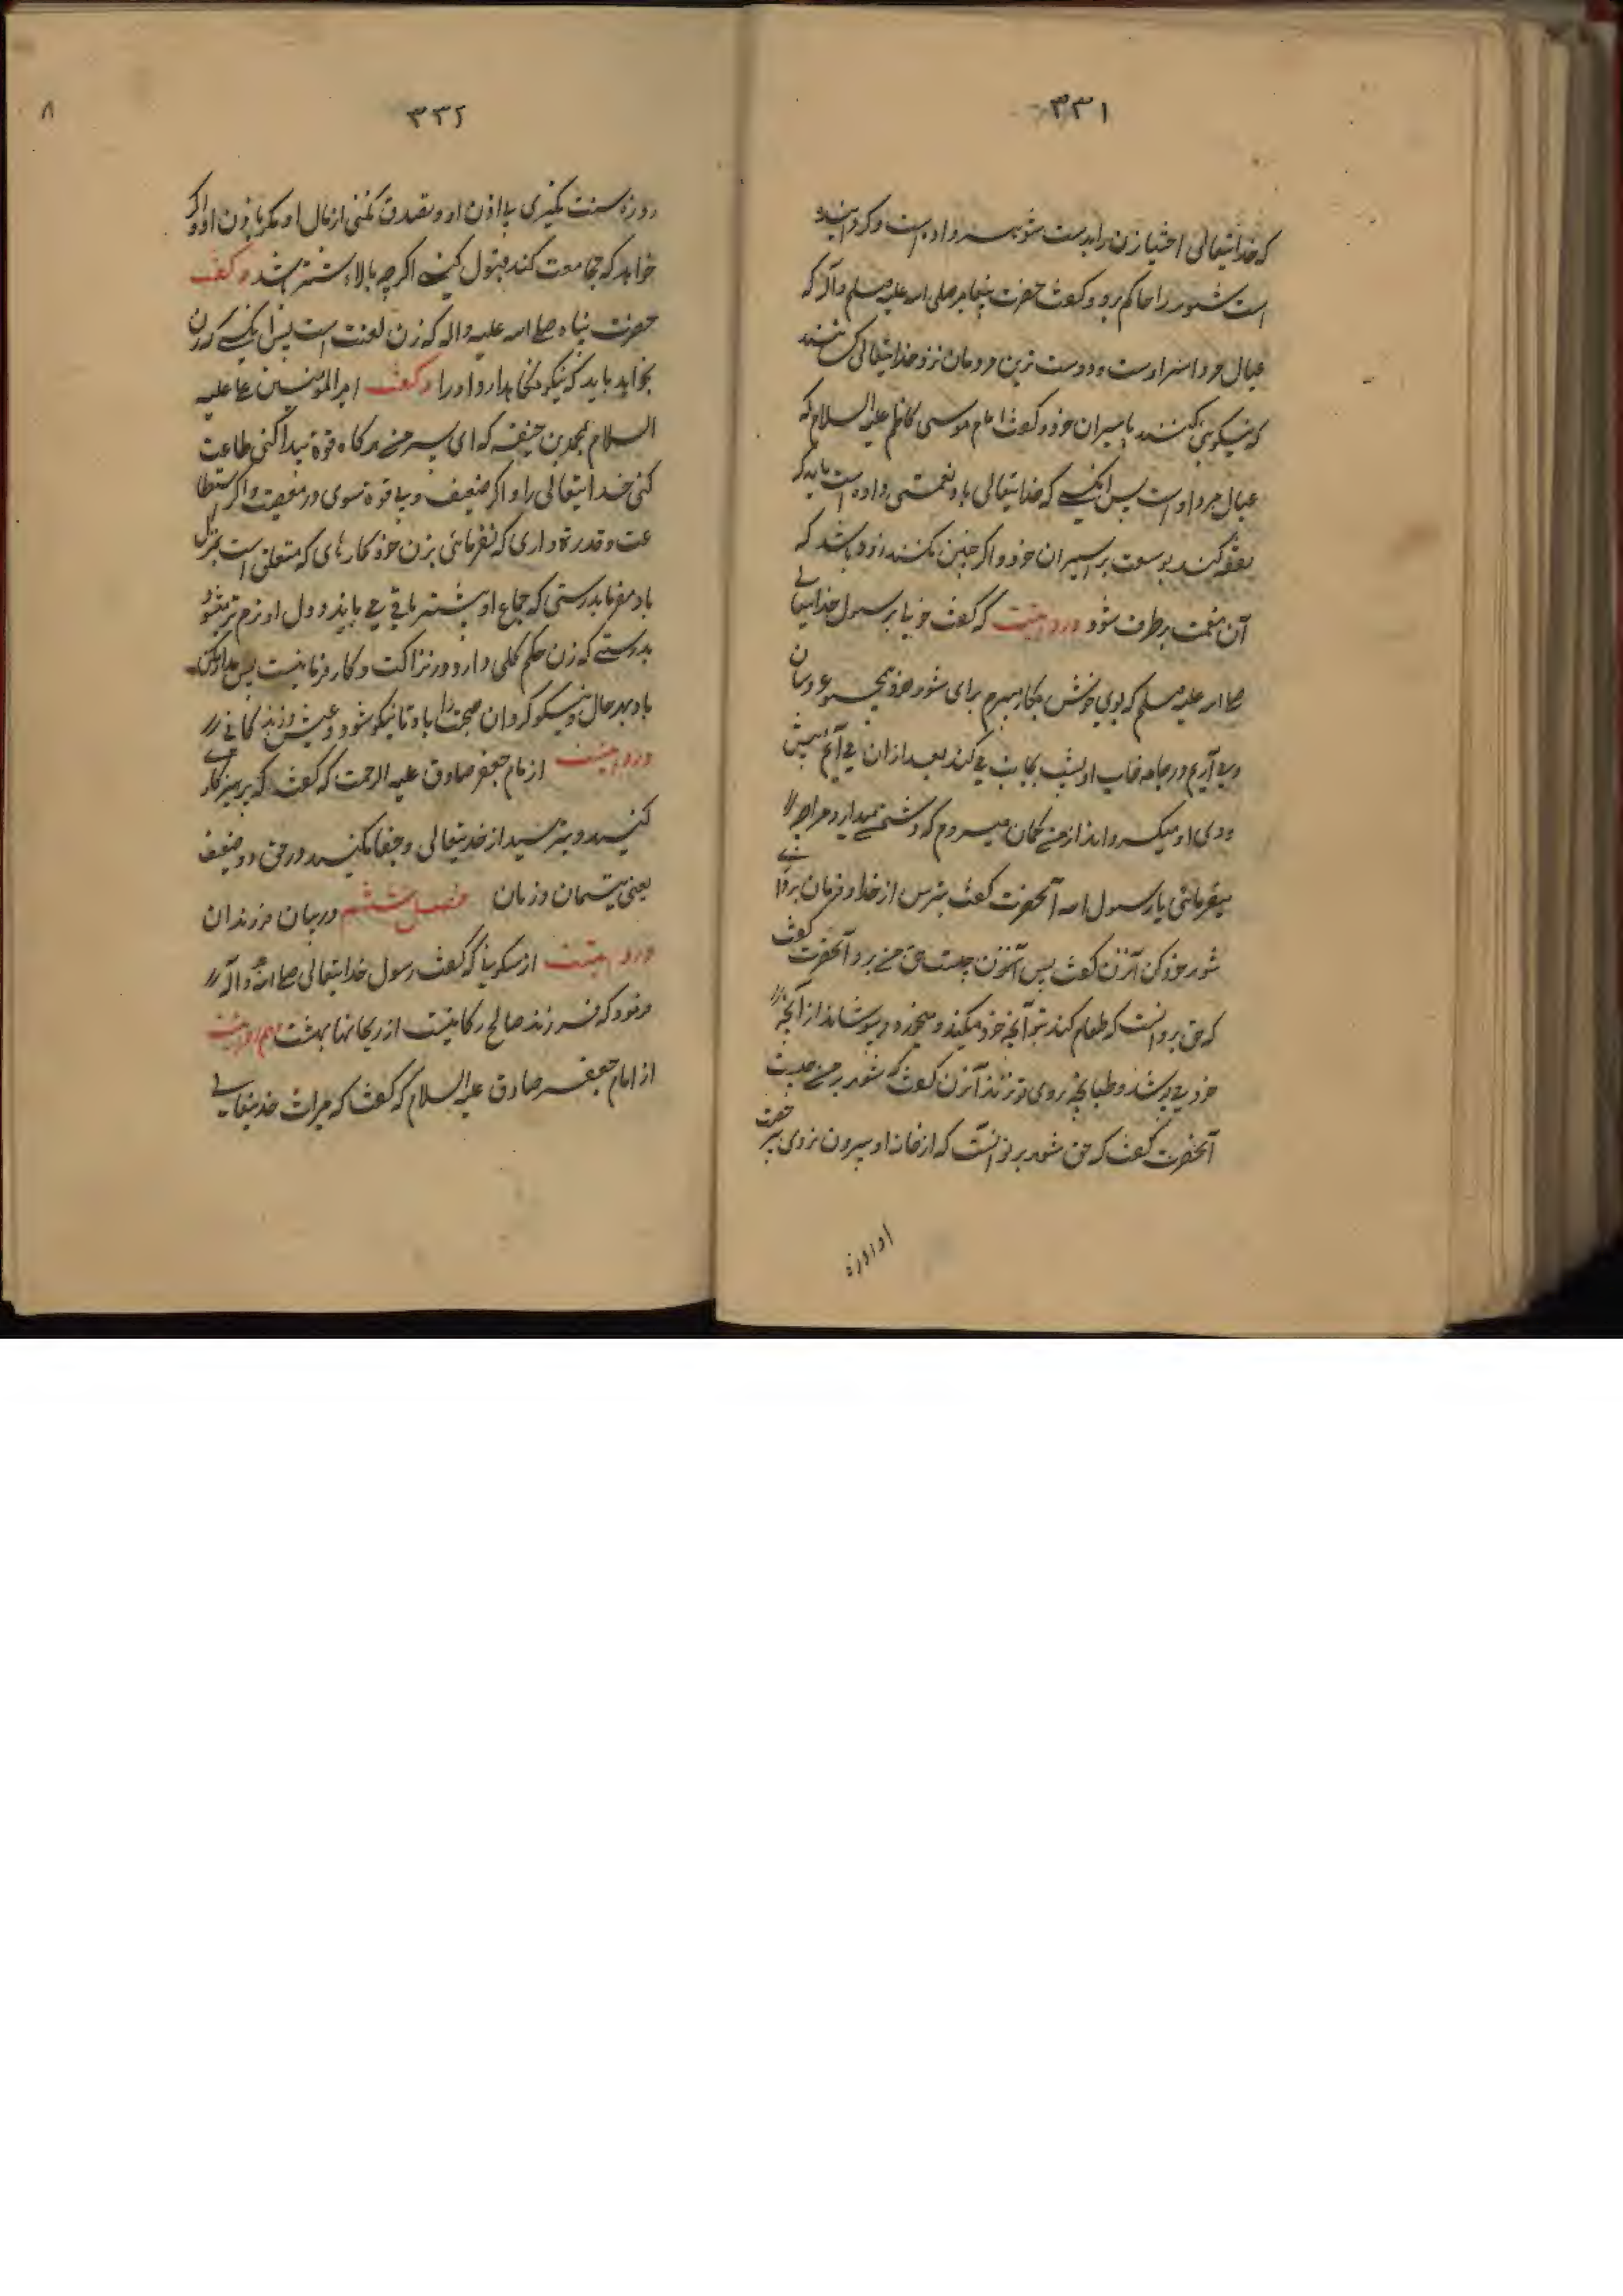 ۳۳۱
که خدایتعالی اختیار زن را بدست شوهر او داده است و گردانیده
است شوهر را حاکم برو و گفت حضرت پیغامبر صلی الله علیه وسلم وآله که
عیال مرد اسیر اوست و دوست ترین مردمان نزد خدایتعالی کسی هستند
که نیکویی کنند با اسیران خود و گفت امام موسی کاظم علیه السلام که
عیال مرد اوست پس آنکسی که خدایتعالی باو نعمتی داده است باید که
نفقه کند بوسعت بر اسیران خود و اگر چنین نکنند زود باشد که
آن نعمت برطرف شود و روایتست که گفت یا رسول خدایتعالی
صلی الله علیه وسلم که بوی خوش بکار میبرم برای شوهر خود عروسان
و می آریم در جامه خاب او پشت بجانب می کند بعد از ان می آیم پیش
روی او میگرداند از من گمان میبرم که دشمن میدارد مرا چه
میفرمائی یا رسول الله آنحضرت گفت بترس از خدا و فرمان برداری
شوهر خود کن آنزن گفت پس آنزن چیست حق من برو آنحضرت گفت
که حق برو آنست که طعام کند بتو آنچه خود میکند و میخورد و بپوشاند از آنچه
خود می پوشد و طپانچه بروی تو نزند آنزن گفت که شوهر بر من چیست
آنحضرت گفت که حق شوهر بر تو آنست که از خانه او بیرون نروی بی رخصت
او و روزه
۳۳۲
۸
روزه سنت نگیری بی اذن او و تصدق نکنی از مال او مگر باذن او و اگر
خواهد که مجامعت کند قبول کنی اگر چه بالاء شتر باشد و گفت
حضرت پناه صلی الله علیه واله که زن لعنت است پس آنکسی که زن
بخواهد باید که نیکو نگاهدارد او را و گفت امیر المؤمنین علی علیه
السلام بمحمد بن حنیفه که ای پسر من هر گاه قوة پیدا کنی طاعت
کنی خدایتعالی را و اگر ضعیف و بی قوة شوی در معصیت و اگر استطا
عت و قدرة داری که نفرمائی بزن خود کارهای که متعلق است بمنزل
باد مفرما بدرستی که جماع او بیشتر باقی می ماند و دل او نرم تر میشود
بدرستی که زن حکم گلی دارد در نزاکت و کار فرما نیست پس مدارا کن
باو بهر حال و نیکو گردان صحبت را باو تا نیکو شود عیش و زندگانی
و روایتست از امام جعفر صادق علیه الرحمت که گفت که پرهیز کاری
کنید و بترسید از خدیتعالی و جفا مکنید در حق دو ضعیف
یعنی یتیمان و زنان فصل ششم در بیان فرزندان
و روایتست از سکونی که گفت رسول خدایتعالی صلی الله و آله
فرمود که فرزند صالح ریحانیست از ریحانها بهشت هم روایتست
از امام جعفر صادق علیه السلام که گفت که میراث خدیتعالی